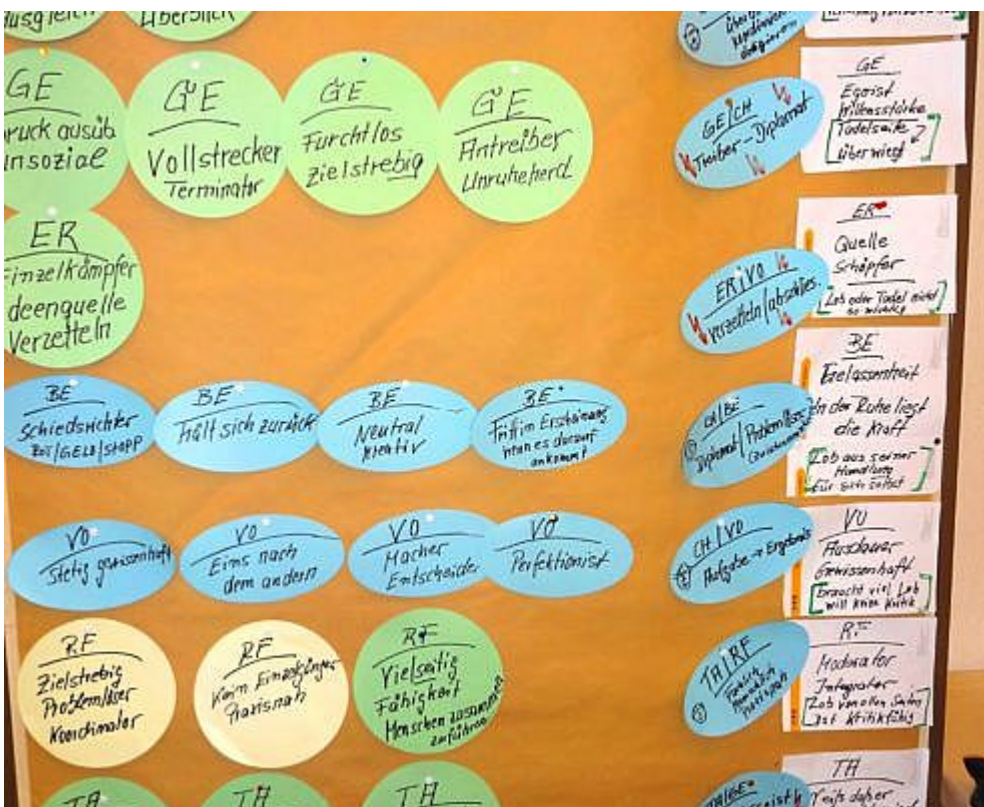 Überblick
GE
ruck ausüb
nsozial
GE
Vollstrecker
Terminator
GE
Furchtlos
Zielstrebig
GE
Antreiber
Unruheherd
ER
inzelkämpfer
deenquelle
Verzetteln
BE
Schiedsrichter
BOS/GELD/STOPP
BE
Hält sich zurück
BE
Neutral
kreativ
BE
Tritt in Erscheinung
wenn es darauf
ankommt
VO
Stetig gewissenhaft
VO
Eins nach
dem andern
VO
Macher
Entscheider
VO
Perfektionist
RF
Zielstrebig
Problemlöser
Koordinator
RF
Kein Einzelgänger
Praxisnah
RF
Vielseitig
Fähigkeit
Menschen zusammen
zuführen
TA
TA
TA
GE/CH
Treiber-Diplomat
ER/VO
verzetteln/abschlies.
CH/BE
Diplomat/Problemlöser
CH/VO
Aufgabe → Ergebnis
TA/RF
Praxisnah
TA/BE
GE
Egoist
Willensstärke
Tadelseite
überwiegt
ER
Quelle
Schöpfer
Lob oder Tadel nicht
so wichtig
BE
Gelassenheit
In der Ruhe liegt
die Kraft
Lob aus seiner
Handlung
für sich selbst
VO
Ausdauer
Gewissenhaft
braucht viel Lob
will keine Kritik
RF
Moderator
Integrator
Lob von allen Seiten
Ist kritikfähig
TA